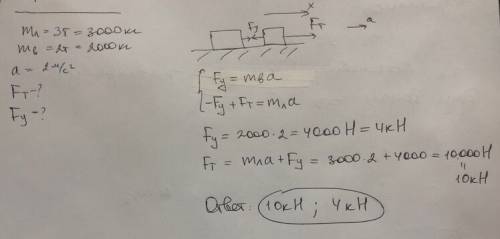 mл = 3T = 3000кг
mв = 2т = 2000кг
a = 2 м/с²
Fт - ?
Fу - ?
x
Fу
Fт
a
Fу = mвa
-Fу + Fт = mлa
Fу = 2000·2 = 4000 Н = 4кН
Fт = mлa + Fу = 3000·2 + 4000 = 10000 Н
"
10кН
Ответ: 10кН ; 4кН